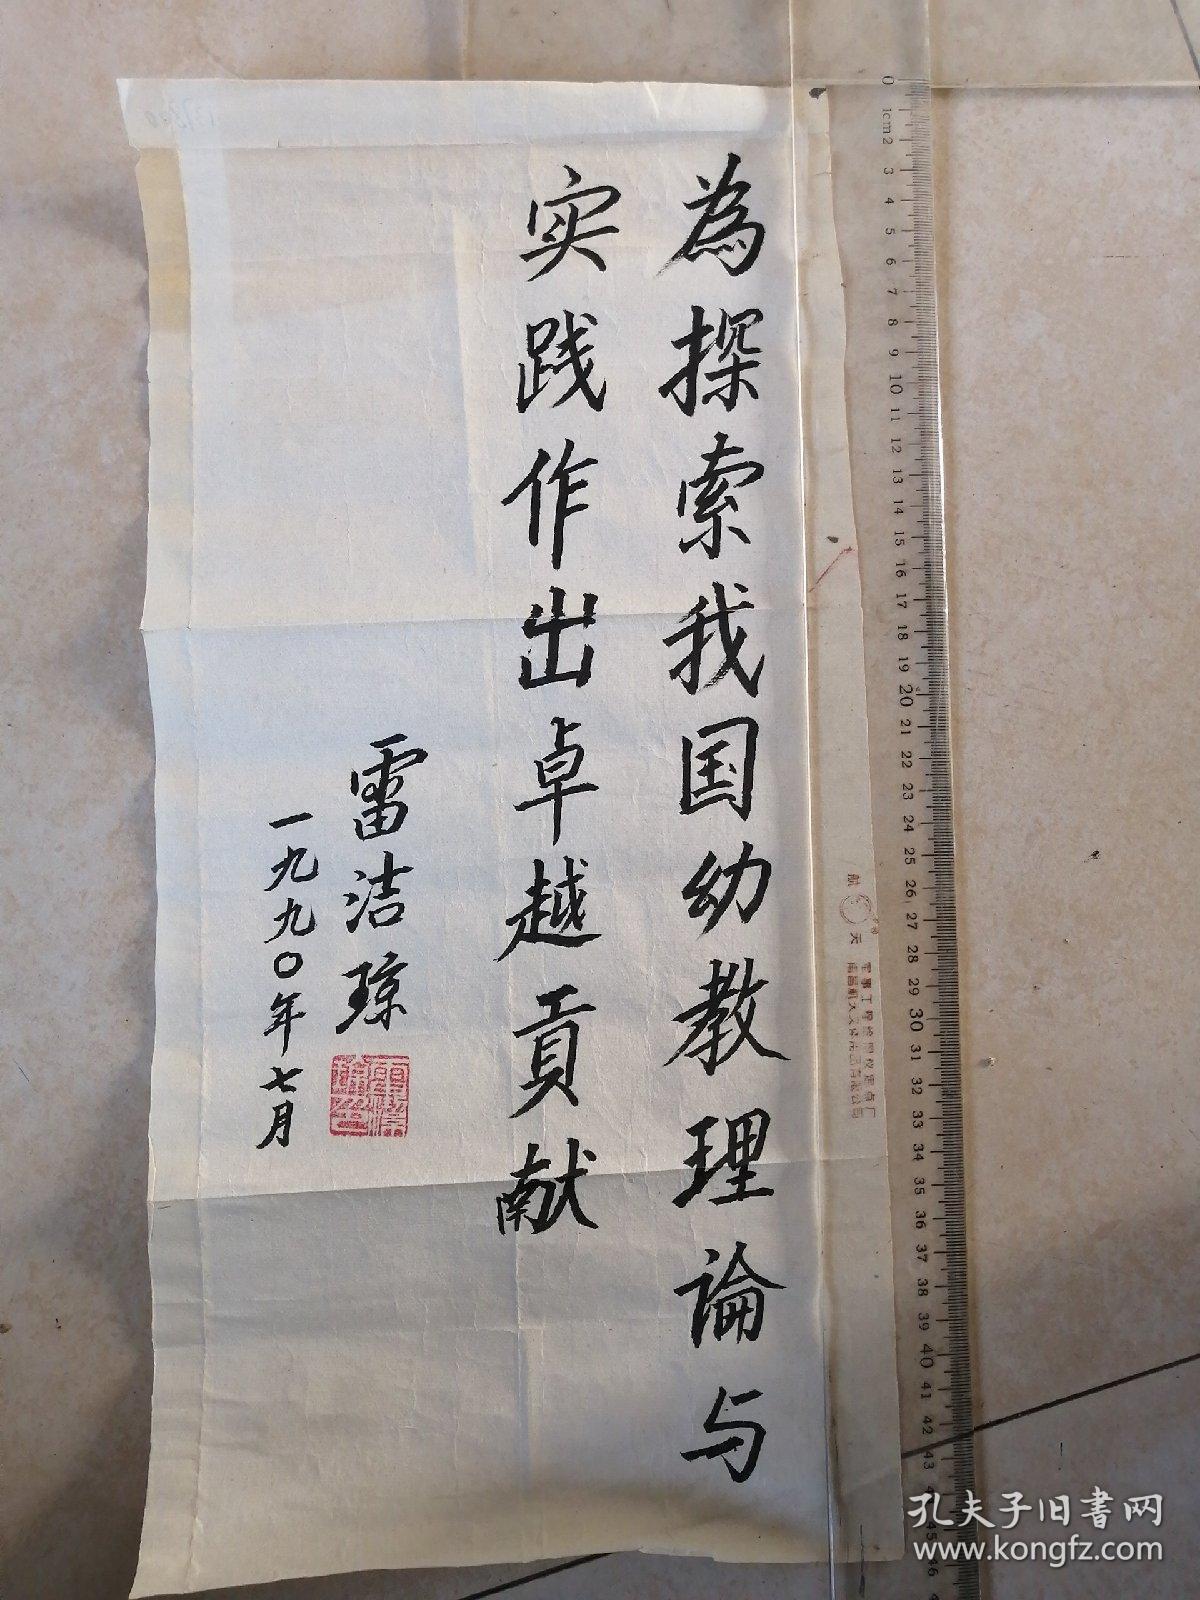 為探索我国幼教理論与
实践作出卓越貢献
雷洁琼
一九九〇年七月
航天
0 1cm 2 3 4 5 6 7 8 9 10 11 12 13 14 15 16 17 18 19 20 21 22 23 24 25 26 27 28 29 30 31 32 33 34 35 36 37 38 39 40 41 42 43
45
46
孔夫子旧书网
www.kongfz.com